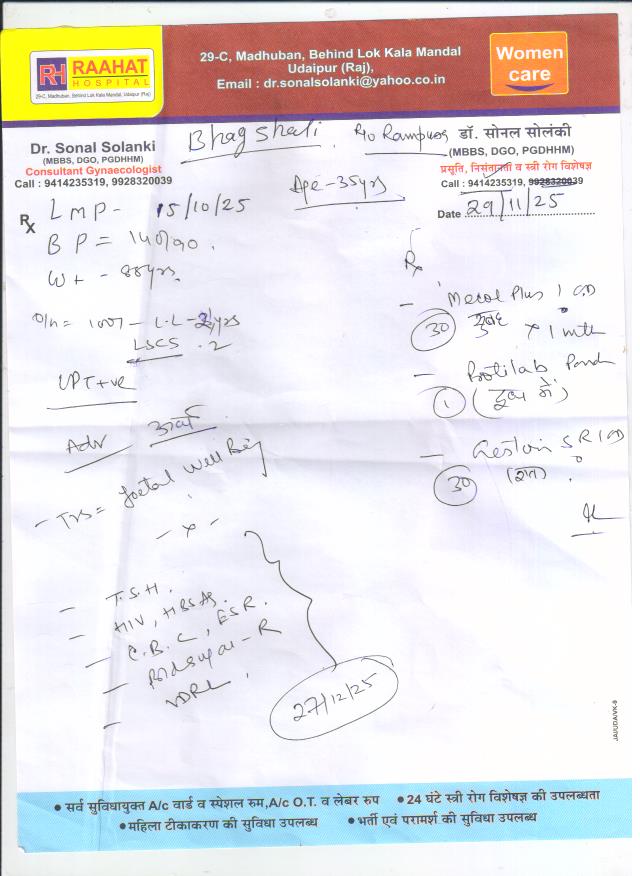 RH RAAHAT
HOSPITAL
29-C, Madhuban, Behind Lok Kala Mandal, Udaipur (Raj)
29-C, Madhuban, Behind Lok Kala Mandal
Udaipur (Raj),
Email : dr.sonalsolanki@yahoo.co.in
Women
care
Dr. Sonal Solanki
(MBBS, DGO, PGDHHM)
Consultant Gynaecologist
Call : 9414235319, 9928320039
Bhagshali R/o Rampura
Age - 35yrs
डॉ. सोनल सोलंकी
(MBBS, DGO, PGDHHM)
प्रसूति, निसंतानता व स्त्री रोग विशेषज्ञ
Call : 9414235319, 9928320039
Date 29/11/25
Rx
LMP - 15/10/25
BP = 140/90.
Wt - 88
LSCS . 2
UPT +ve
Adv
- TVS = Foetal Well Being
- x -
- T.S.H.
- HIV, HBSAg.
- C.B.C, ESR.
- Bld Sugar - R
- VDRL.
27/12/25
Rx
- Plus 1 OD
30 सुबह x 1 mth
- Protilab
1 (दूध में)
- SR 1 OD
30 (रात)
JAI/UDAI/VK-9
• सर्व सुविधायुक्त A/c वार्ड व स्पेशल रुम,A/c O.T. व लेबर रुप • 24 घंटे स्त्री रोग विशेषज्ञ की उपलब्धता
• महिला टीकाकरण की सुविधा उपलब्ध • भर्ती एवं परामर्श की सुविधा उपलब्ध